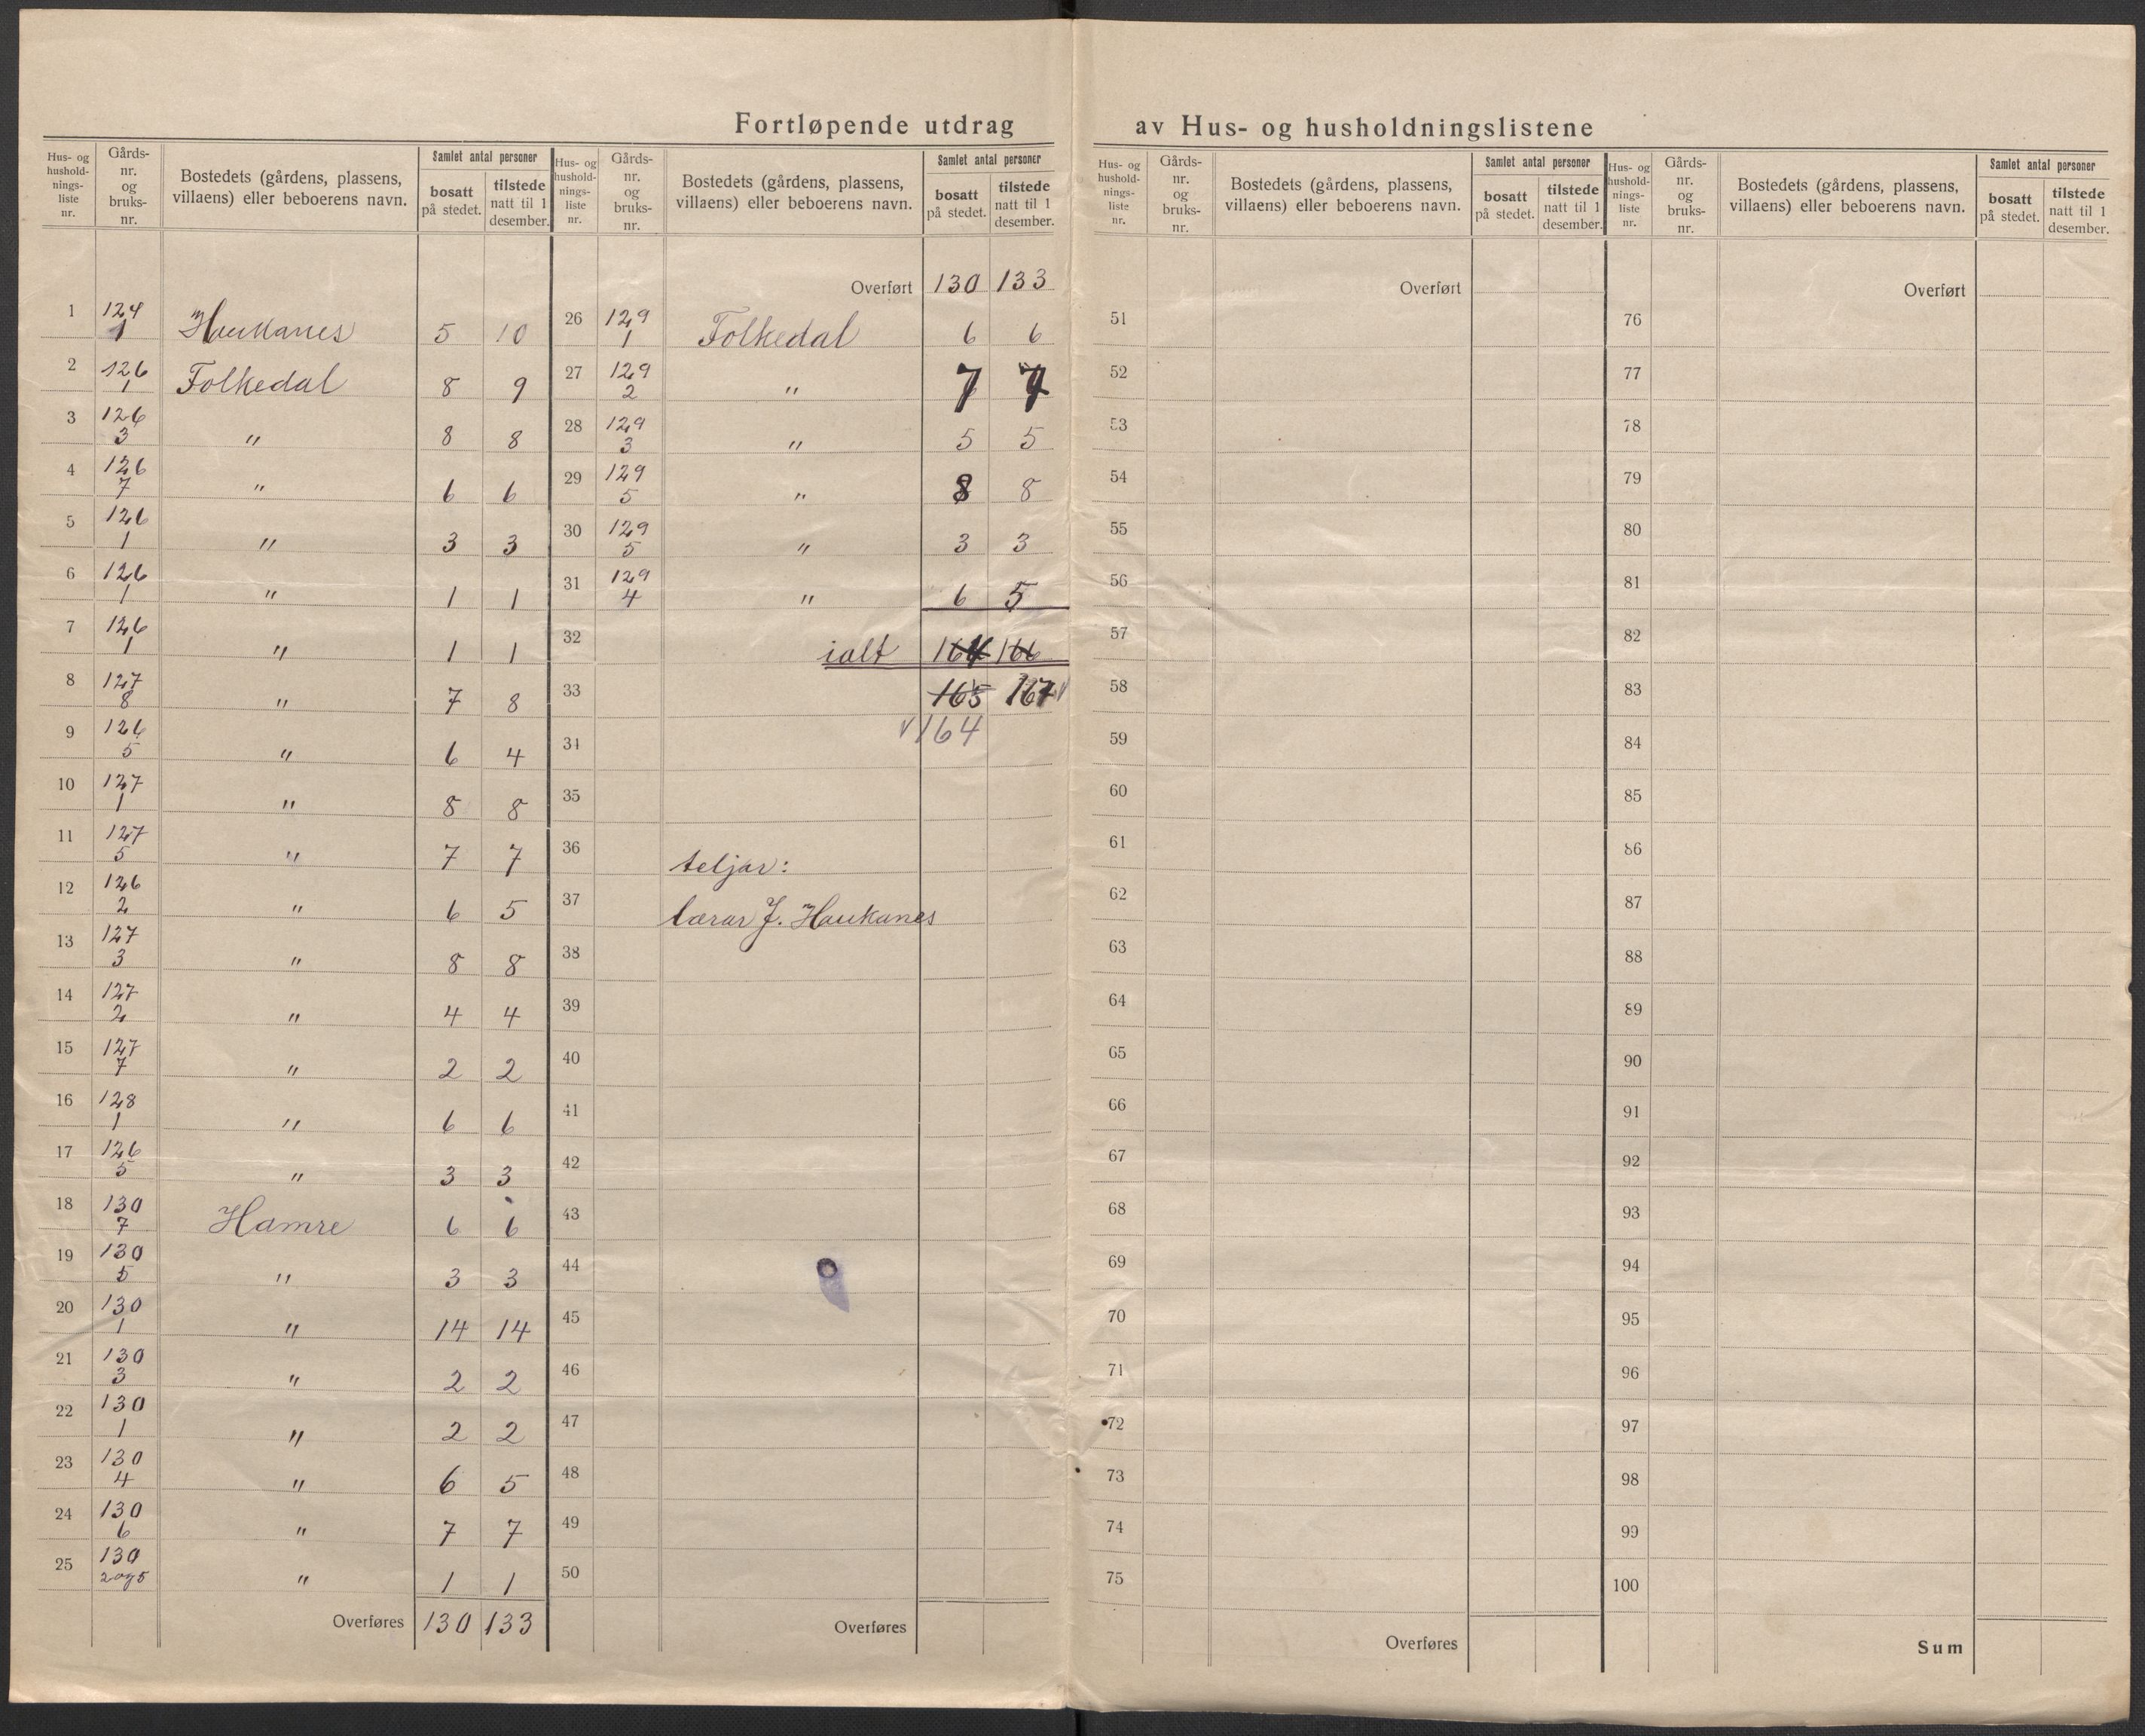 Fortløpende utdrag av Hus- og husholdningslistene
Hus- og husholdnings-liste nr. | Gårds-nr. og bruks-nr. | Bostedets (gårdens, plassens, villaens) eller beboerens navn. | Samlet antal personer | bosatt på stedet. | tilstede natt til 1 desember.
1 124/1 Haukanes 5 10
2 126/1 Folkedal 8 9
3 126/3 " 8 8
4 126/7 " 6 6
5 126/1 " 3 3
6 126/1 " 1 1
7 126/1 " 1 1
8 127/8 " 7 8
9 126/5 " 6 4
10 127/1 " 8 8
11 127/5 " 7 7
12 126/2 " 6 5
13 127/3 " 8 8
14 127/2 " 4 4
15 127/7 " 2 2
16 128/1 " 6 6
17 126/5 " 3 3
18 130/7 Hamre 6 6
19 130/5 " 3 3
20 130/1 " 14 14
21 130/3 " 2 2
22 130/1 " 2 2
23 130/4 " 6 5
24 130/6 " 7 7
25 130/2 og 5 " 1 1
Overføres 130 133
Hus- og husholdnings-liste nr. | Gårds-nr. og bruks-nr. | Bostedets (gårdens, plassens, villaens) eller beboerens navn. | Samlet antal personer | bosatt på stedet. | tilstede natt til 1 desember.
Overført 130 133
26 129/1 Folkedal 6 6
27 129/2 " 7 7
28 129/3 " 5 5
29 129/5 " 8 8
30 129/5 " 3 3
31 129/4 " 6 5
32 ialt 164 166
33 165 167 v
34 v 164
35
36 teljar:
37 lærar J. Haukanes
38
39
40
41
42
43
44
45
46
47
48
49
50
Overføres
Hus- og husholdnings-liste nr. | Gårds-nr. og bruks-nr. | Bostedets (gårdens, plassens, villaens) eller beboerens navn. | Samlet antal personer | bosatt på stedet. | tilstede natt til 1 desember.
Overført
51
52
53
54
55
56
57
58
59
60
61
62
63
64
65
66
67
68
69
70
71
72
73
74
75
Overføres
Hus- og husholdnings-liste nr. | Gårds-nr. og bruks-nr. | Bostedets (gårdens, plassens, villaens) eller beboerens navn. | Samlet antal personer | bosatt på stedet. | tilstede natt til 1 desember.
Overført
76
77
78
79
80
81
82
83
84
85
86
87
88
89
90
91
92
93
94
95
96
97
98
99
100
Sum